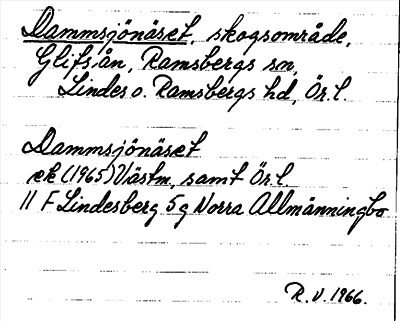 Dammsjönäset, skogsområde,
Glifsån, Ramsbergs sn,
Lindes o. Ramsbergs hd, Ör.l.
Dammsjönäset
ek (1965) Västm, samt Ör.l.
11 F Lindesberg 5 g Norra Allmänningbo
R.V. 1966.